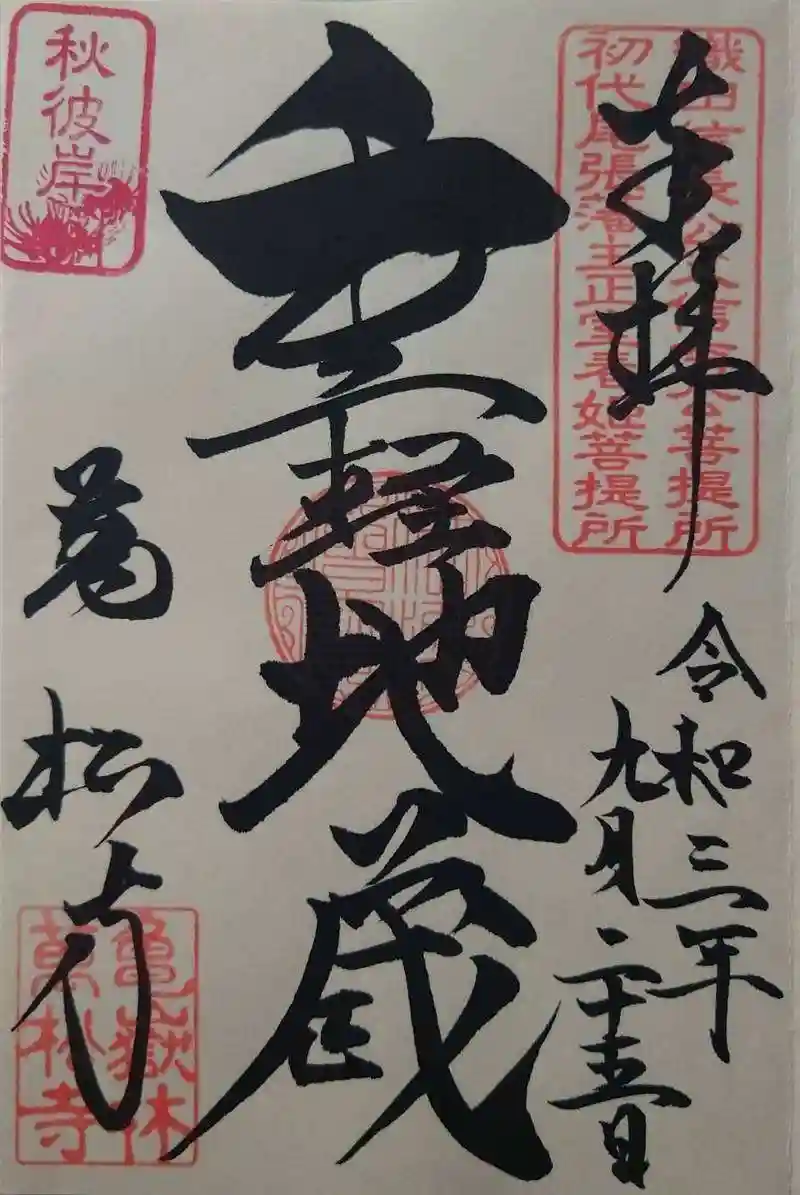 奉拝
織田信長公父信秀公菩提所
初代尾張藩主正室春姫菩提所
令和三年
九月二十五日
重軽地蔵
秋彼岸
萬松寺
亀嶽林
萬松寺